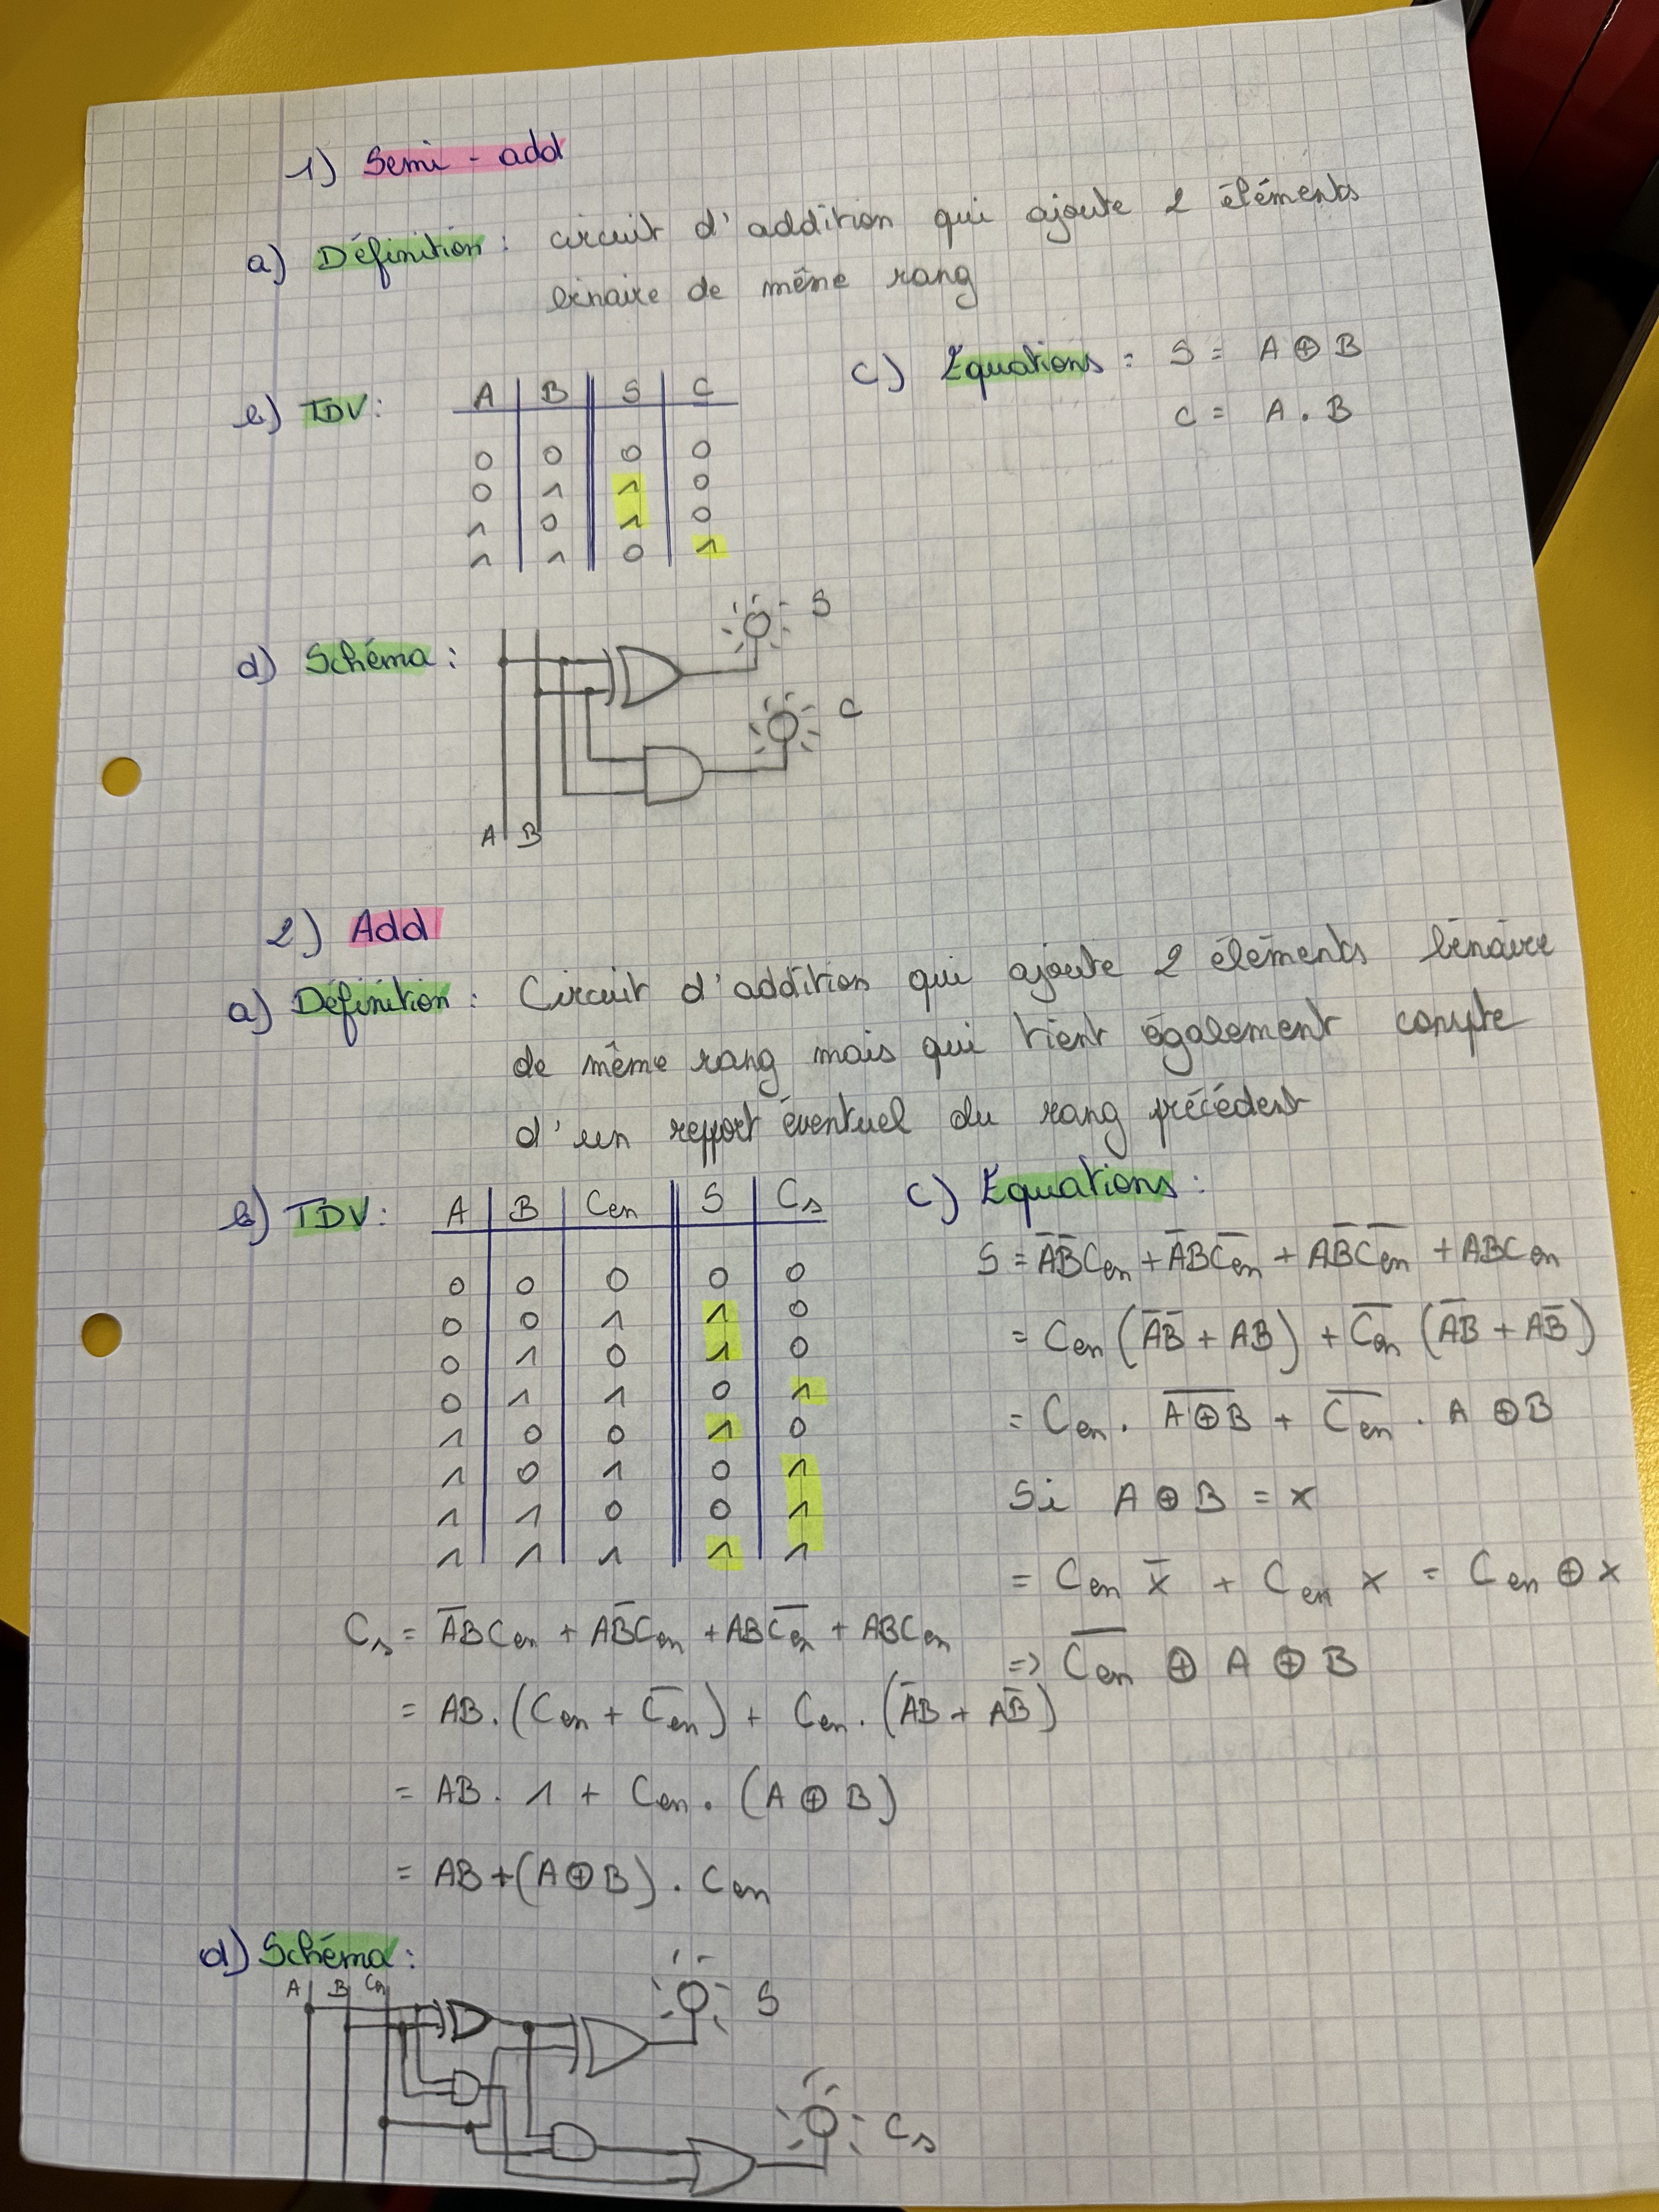 1) Semi - add
a) Définition : circuit d'addition qui ajoute 2 éléments
binaire de même rang
b) TDV :
A | B || S | C
0 | 0 || 0 | 0
0 | 1 || 1 | 0
1 | 0 || 1 | 0
1 | 1 || 0 | 1
c) Equations : S = A ⊕ B
C = A . B
d) Schéma :
S
C
A B
2) Add
a) Définition : Circuit d'addition qui ajoute 2 éléments binaire
de même rang mais qui tient également compte
d'un repport éventuel du rang précédent
b) TDV :
A | B | Cen || S | Cs
0 | 0 | 0 || 0 | 0
0 | 0 | 1 || 1 | 0
0 | 1 | 0 || 1 | 0
0 | 1 | 1 || 0 | 1
1 | 0 | 0 || 1 | 0
1 | 0 | 1 || 0 | 1
1 | 1 | 0 || 0 | 1
1 | 1 | 1 || 1 | 1
c) Equations :
S = A̅B̅Cen + A̅BC̅e̅n̅ + AB̅C̅e̅n̅ + ABCen
= Cen (A̅B̅ + AB) + C̅e̅n̅ (A̅B + AB̅)
= Cen . A̅ ⊕̅ B̅ + C̅e̅n̅ . A ⊕ B
Si A ⊕ B = x
= Cen x̅ + Cen x = Cen ⊕ x
=> C̅e̅n̅ ⊕ A ⊕ B
Cs = A̅BCen + AB̅Cen + ABC̅e̅n̅ + ABCen
= AB . (Cen + C̅e̅n̅) + Cen . (A̅B + AB̅)
= AB . 1 + Cen . (A ⊕ B)
= AB + (A ⊕ B) . Cen
d) Schéma :
A B Cen
S
Cs